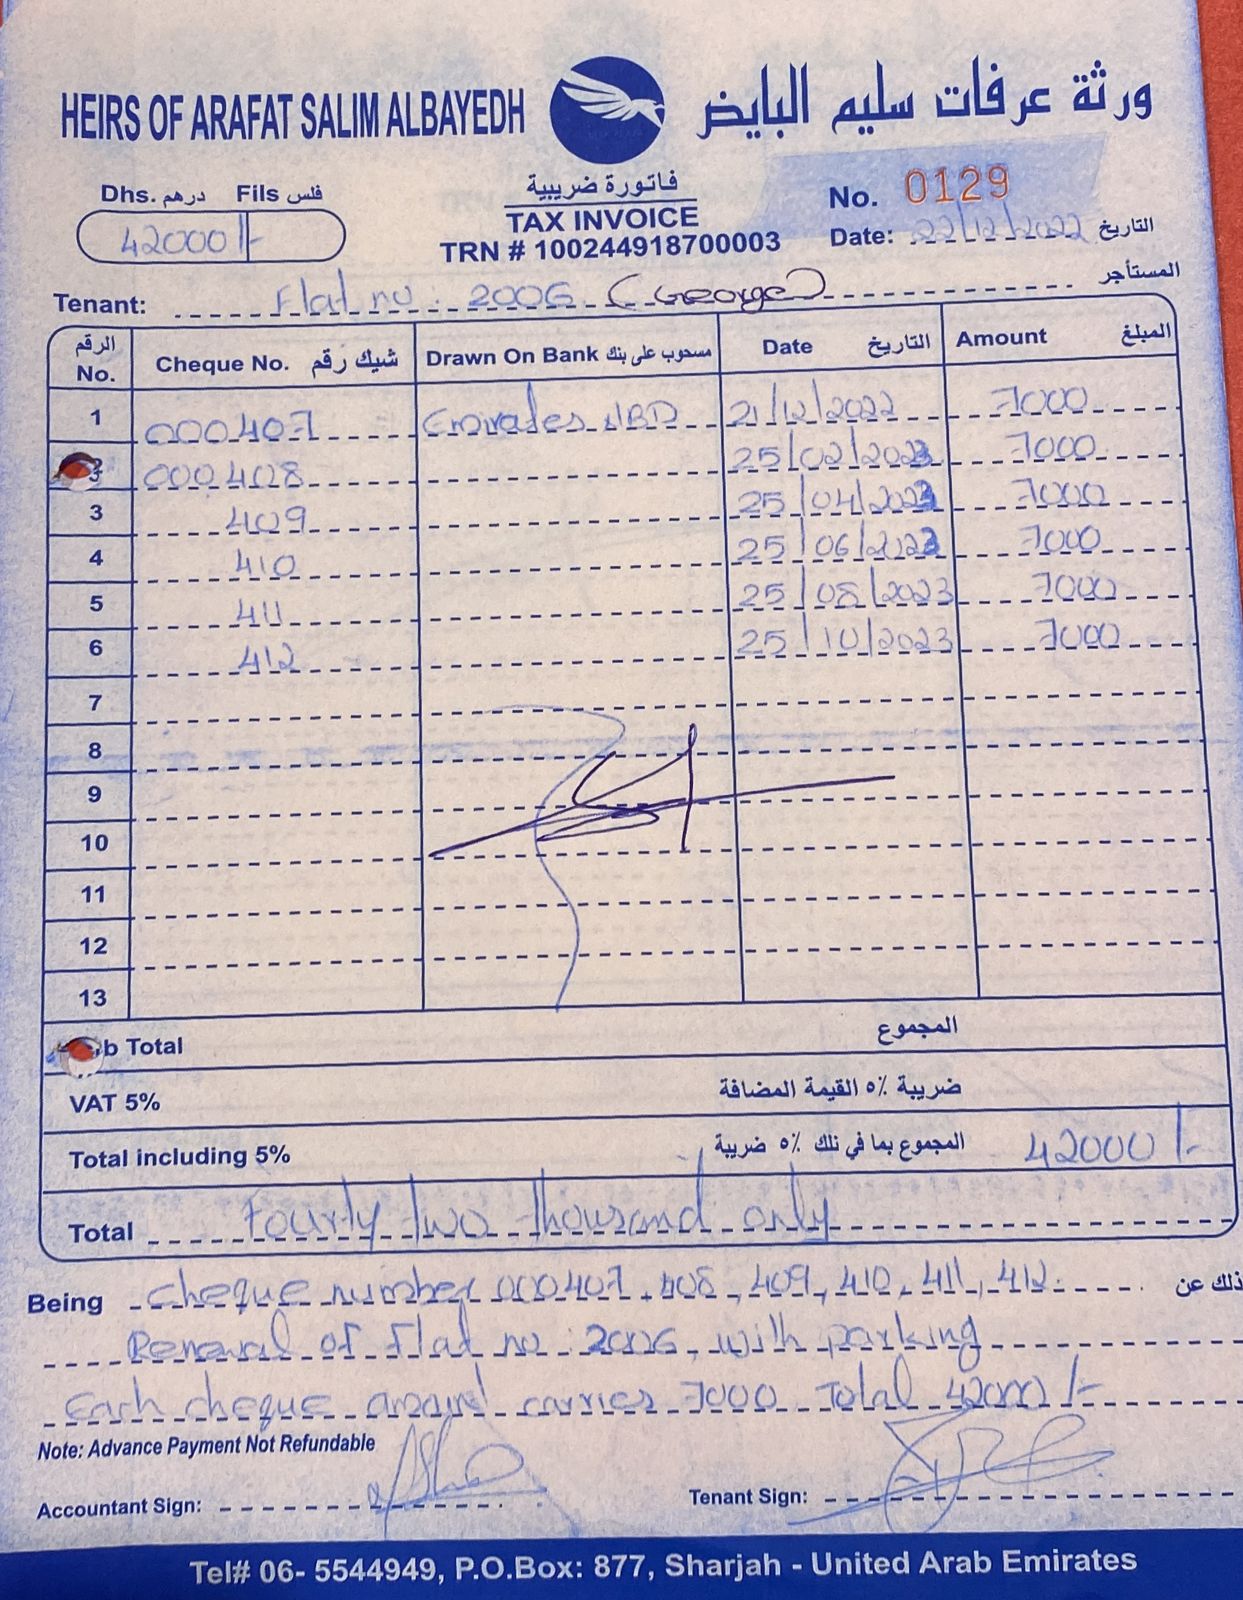 HEIRS OF ARAFAT SALIM ALBAYEDH ورثة عرفات سليم البايض
Dhs. درهم Fils فلس
42000/-
فاتورة ضريبية
TAX INVOICE
TRN # 100244918700003
No. 0129
Date: 22/12/2022 التاريخ
Tenant: Flat no. 2006 (George) المستأجر
الرقم No. Cheque No. شيك رقم Drawn On Bank مسحوب على بنك Date التاريخ Amount المبلغ
1 000407 Emirades NBD 21/12/2022 7000
000408 25/02/2023 7000
3 409 25/04/2023 7000
4 410 25/06/2023 7000
5 411 25/08/2023 7000
6 412 25/10/2023 7000
7
8
9
10
11
12
13
b Total المجموع
VAT 5% ضريبة ٥٪ القيمة المضافة
Total including 5% المجموع بما في تلك ٥٪ ضريبة 42000/-
Total Fourty two thousand only
Being cheque number 000407, 408, 409, 410, 411, 412. ذلك عن
Renewal of Flat no: 2006, with parking
Each cheque carries 7000 Total 42000/-
Note: Advance Payment Not Refundable
Accountant Sign: Tenant Sign:
Tel# 06- 5544949, P.O.Box: 877, Sharjah - United Arab Emirates